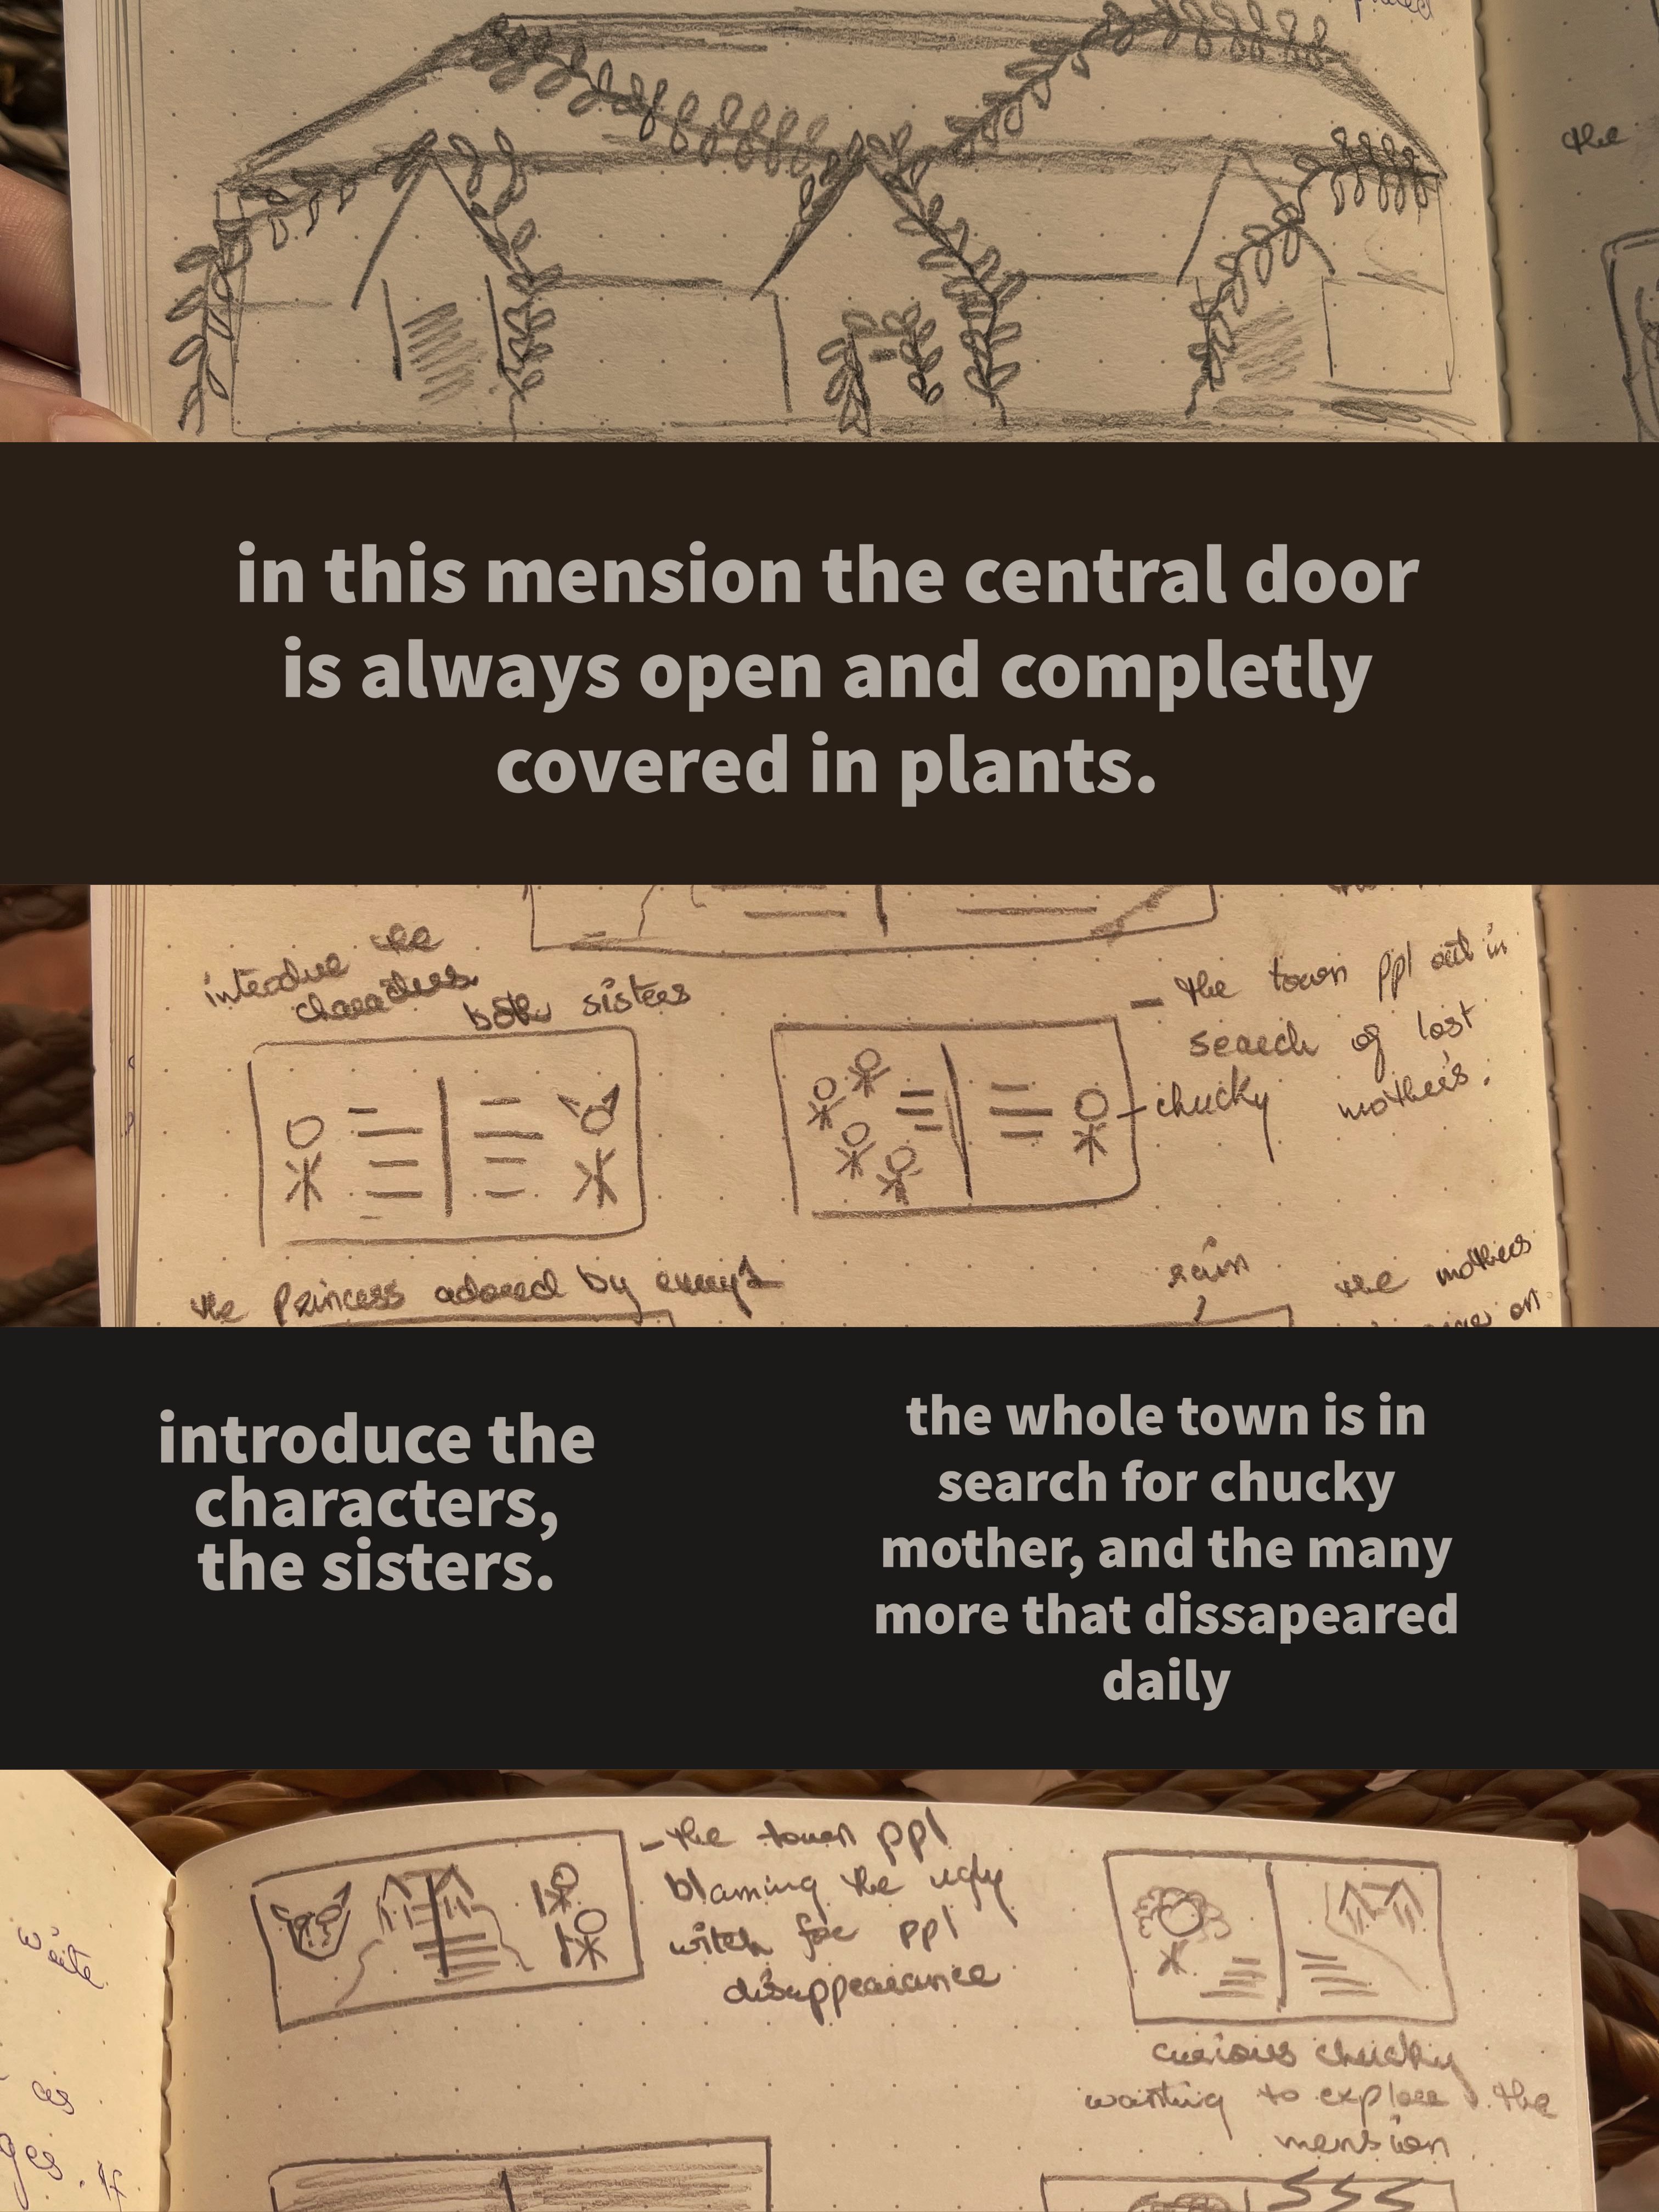 the
in this mension the central door
is always open and completly
covered in plants.
introduce the
characters.
both sisters
- the town ppl out in
search of lost
mother's.
chucky
the Princess adored by every1
rain
the mothers
on
introduce the
characters,
the sisters.
the whole town is in
search for chucky
mother, and the many
more that dissapeared
daily
- the town ppl
blaming the ugly
witch for ppl
disappearance
curious chucky
wanting to explore the
mension